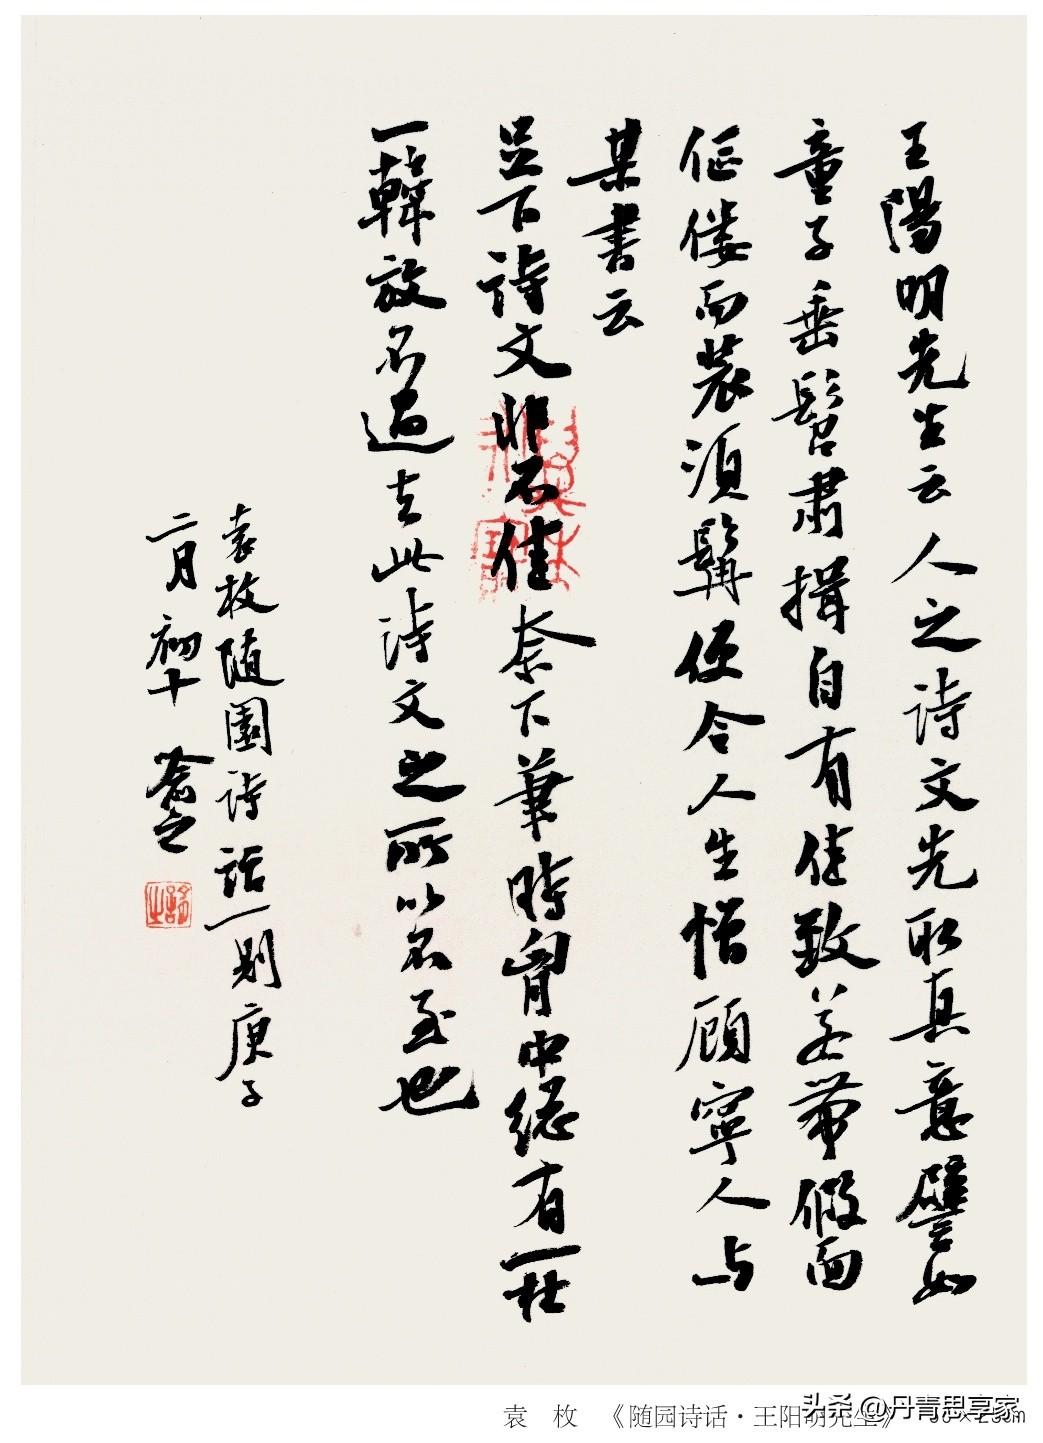 王陽明先生云人之詩文先取真意譬如
童子垂髫肅揖自有佳致若帶假面
傴僂而裝須髯便令人生憎顧寧人与
某書云
足下詩文非不佳奈下筆時胷中總有一杜
一韓放不過去此詩文之所以不至也
袁枚随園詩話一則庚子
二月初十
袁 枚 《随园诗话·王阳明先生》
头条 @丹青思享家